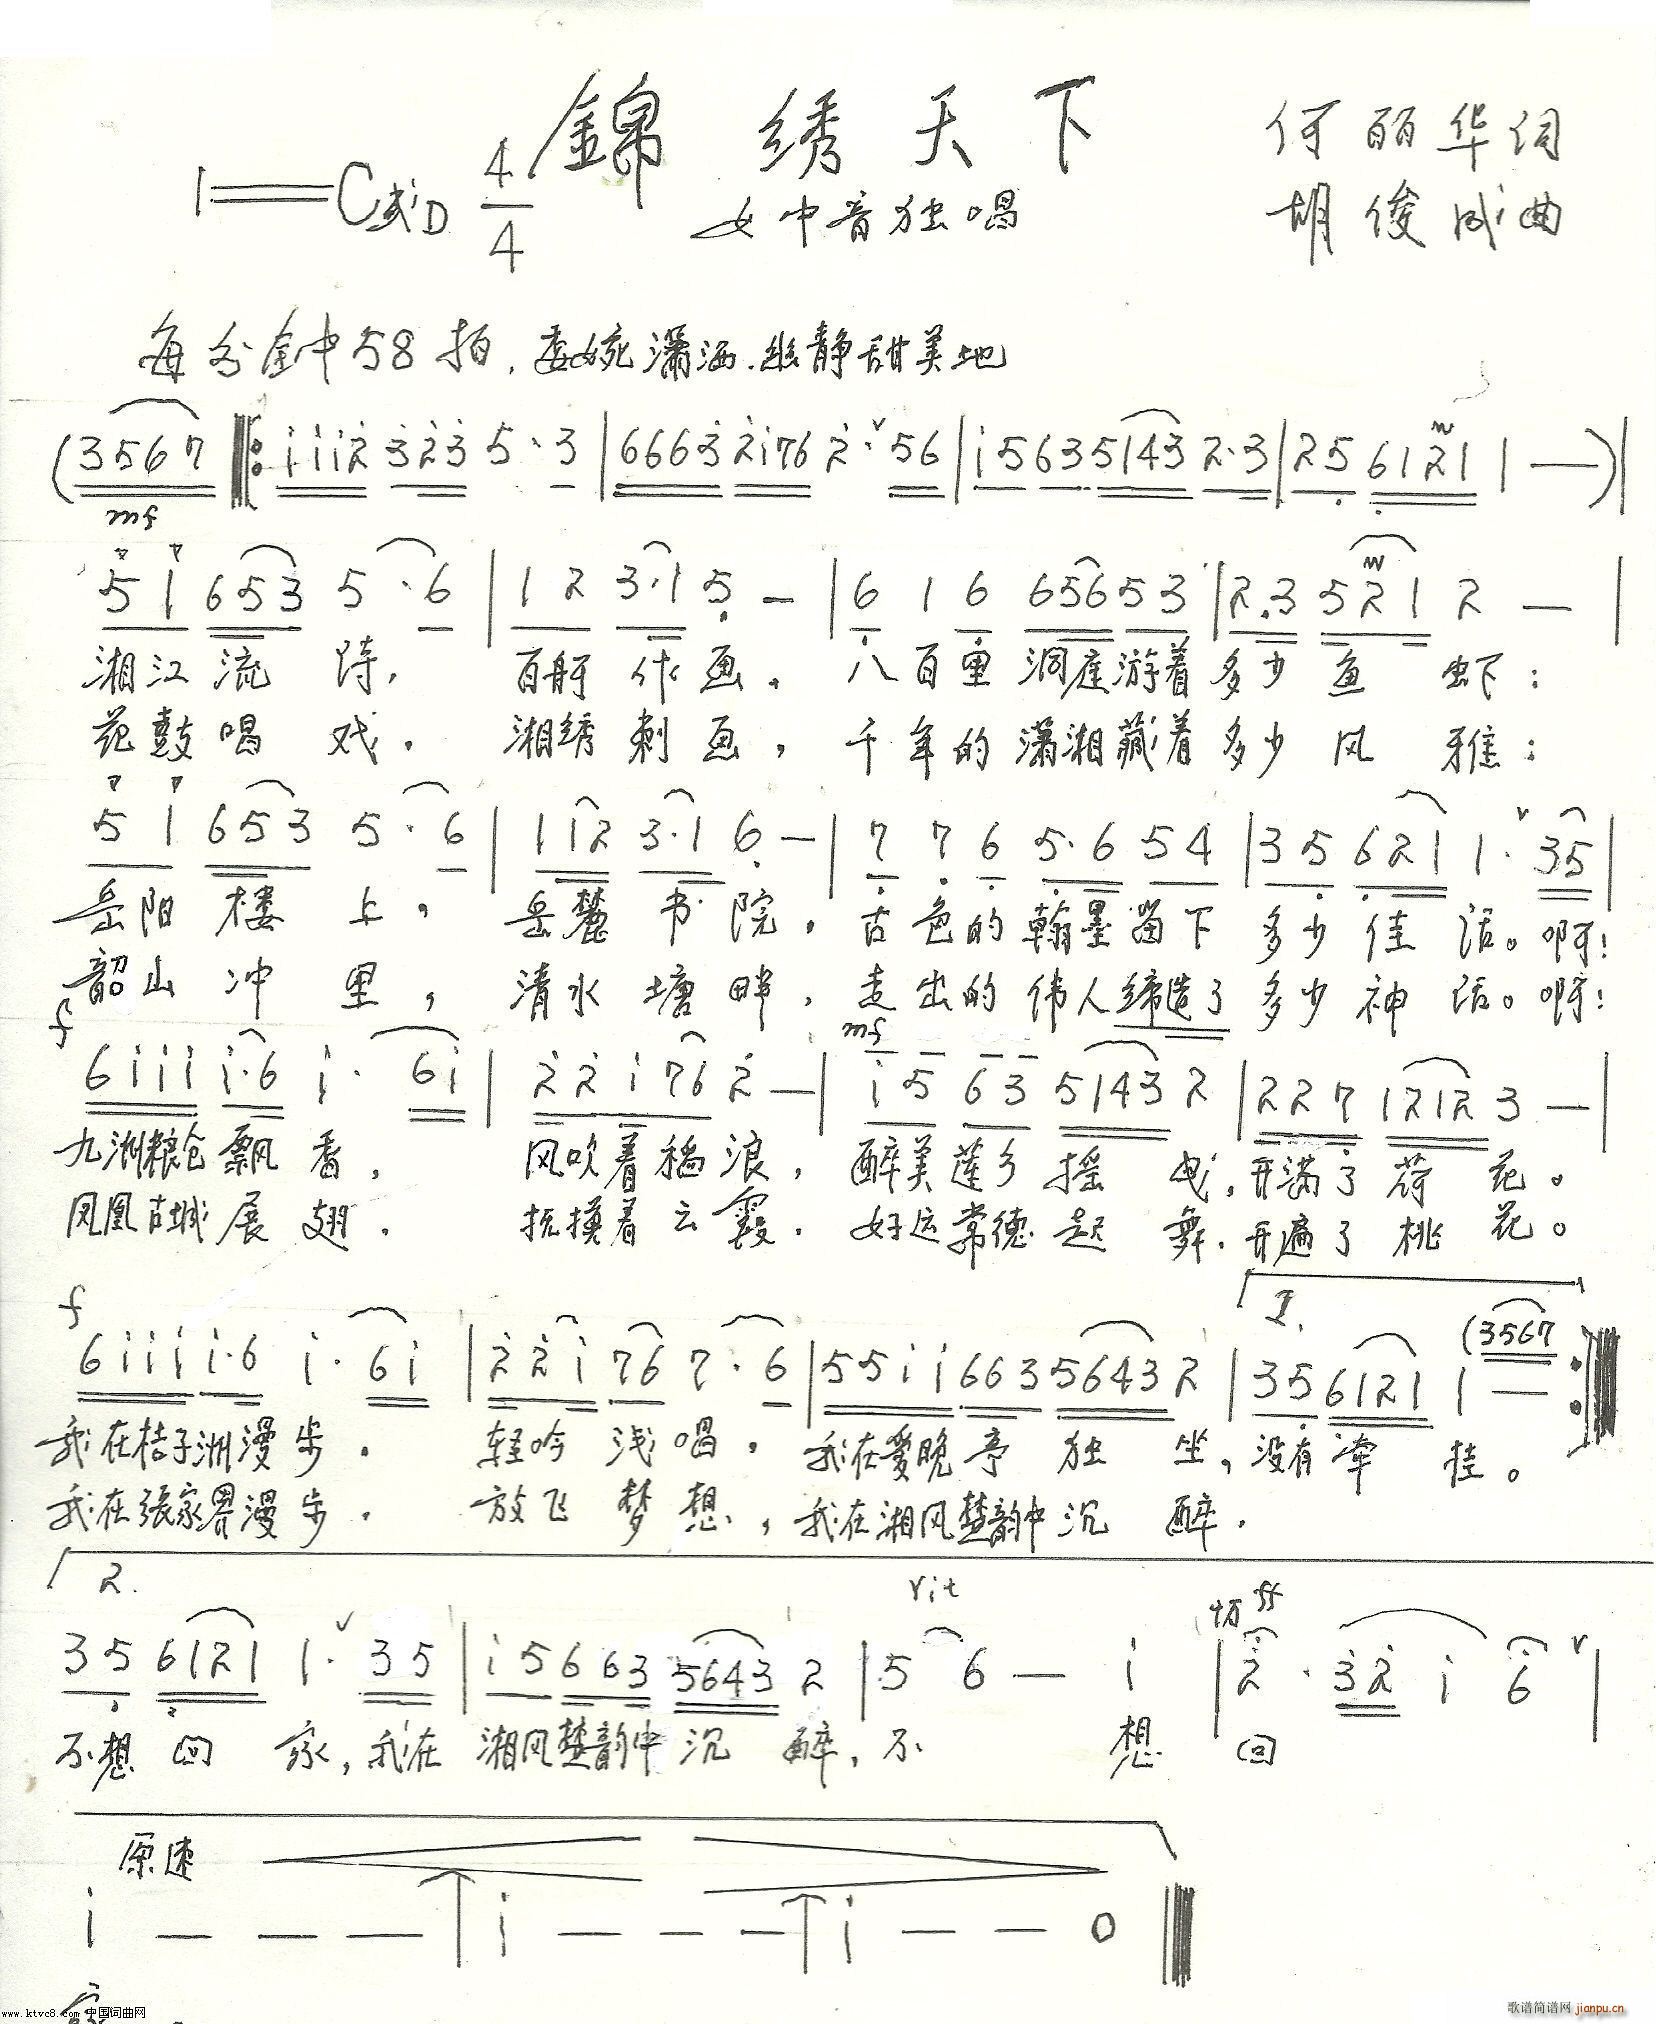 錦绣天下
何丽华词
1=C或D 4/4
女中音独唱
胡俊成曲
每分钟58拍.委婉潇洒.幽静甜美地
(3567 ‖: i i i 2 3 2 3 5·3 | 6663 2i76 2·56 | i 5 6 3 5143 2·3 | 25 6121 1 — )|
mf
5 1 653 5·6 | 1 2 3·1 5 — | 6 1 6 656 53 | 2.3 521 2 — |
湘江流诗,百舸作画。八百里洞庭游着多少鱼虾:
花鼓唱戏,湘绣刺画,千年的潇湘藏着多少风雅:
5 1 653 5·6 | 112 3·1 6 — | 7 7 6 5·6 54 | 35 621 1· 35 |
岳阳楼上,岳麓书院,古色的翰墨留下多少佳话。啊!
韶山冲里,清水塘畔,走出的伟人缔造了多少神话。啊!
f
mf
6iii i·6 i· 6i | 2 2 i 76 2 — | i 5 6 3 5143 2 | 227 1212 3 — |
九洲粮仓飘香,风吹着稻浪,醉美莲乡摇曳,开满了荷花。
凤凰古城展翅.抚摸着云霞.好运常德起舞.开遍了桃花。
f
1.
6iii i·6 i· 6i | 2 2 i 76 7·6 | 55ii 663 5643 2 | 35 6121 1 — (3567 :‖
我在桔子洲漫步.轻吟浅唱,我在爱晚亭独坐,没有牵挂。
我在張家界漫步.放飞梦想,我在湘风楚韵中沉醉.
2.
rit
ff
35 6121 1· 35 | i5 663 5643 2 | 5 6 — i | 2· 32 i 6 |
不想回家,我在湘风楚韵中沉醉,不想回
原速
i — — — i — — — i — — 0
家
www.ktvc8.com 中国词曲网
歌谱简谱网 jianpu.cn